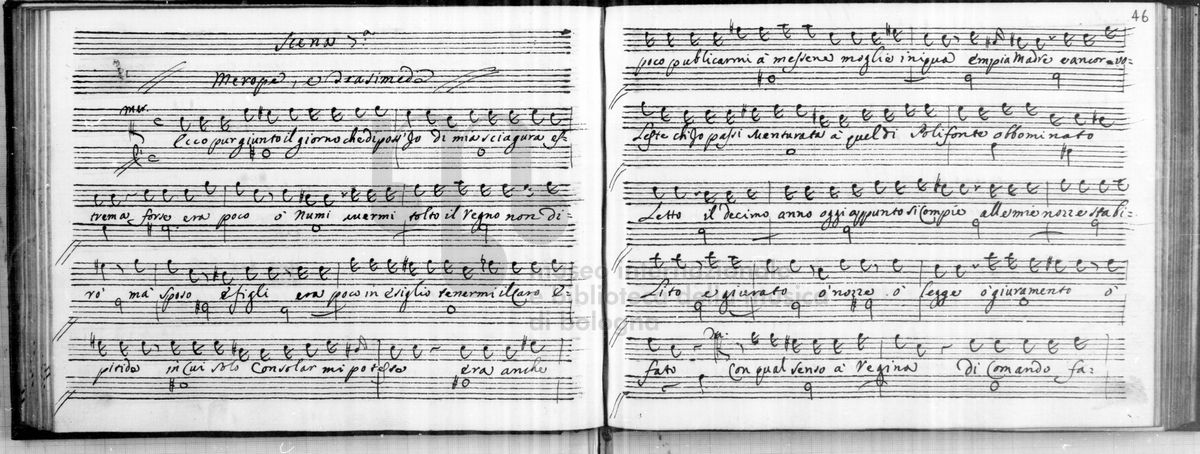 Scena 7.ª
Merope, e Trasimede
Mer.
Ecco pur giunto il giorno che di poi Io di mia sciagura es=
trema forse era poco ò Numi avermi tolto il Regno non di=
rò mà sposo e figli era poco in esiglio tenermi il caro E
pitide in cui solo Consolarmi potesse era anche
46
poco publicarmi à messene moglie iniqua empia Madre e ancor vo=
leste ch'Io passi sventurata à quel di Polifonte abbominato
Letto il decimo anno oggi appunto si compie alle mie nozze stabi=
lito e giurato ò nozze ò legge ò giuramento ò
fato Con qual senso à Regina di Comando fa=
museo internazionale
e biblioteca della musica
di bologna